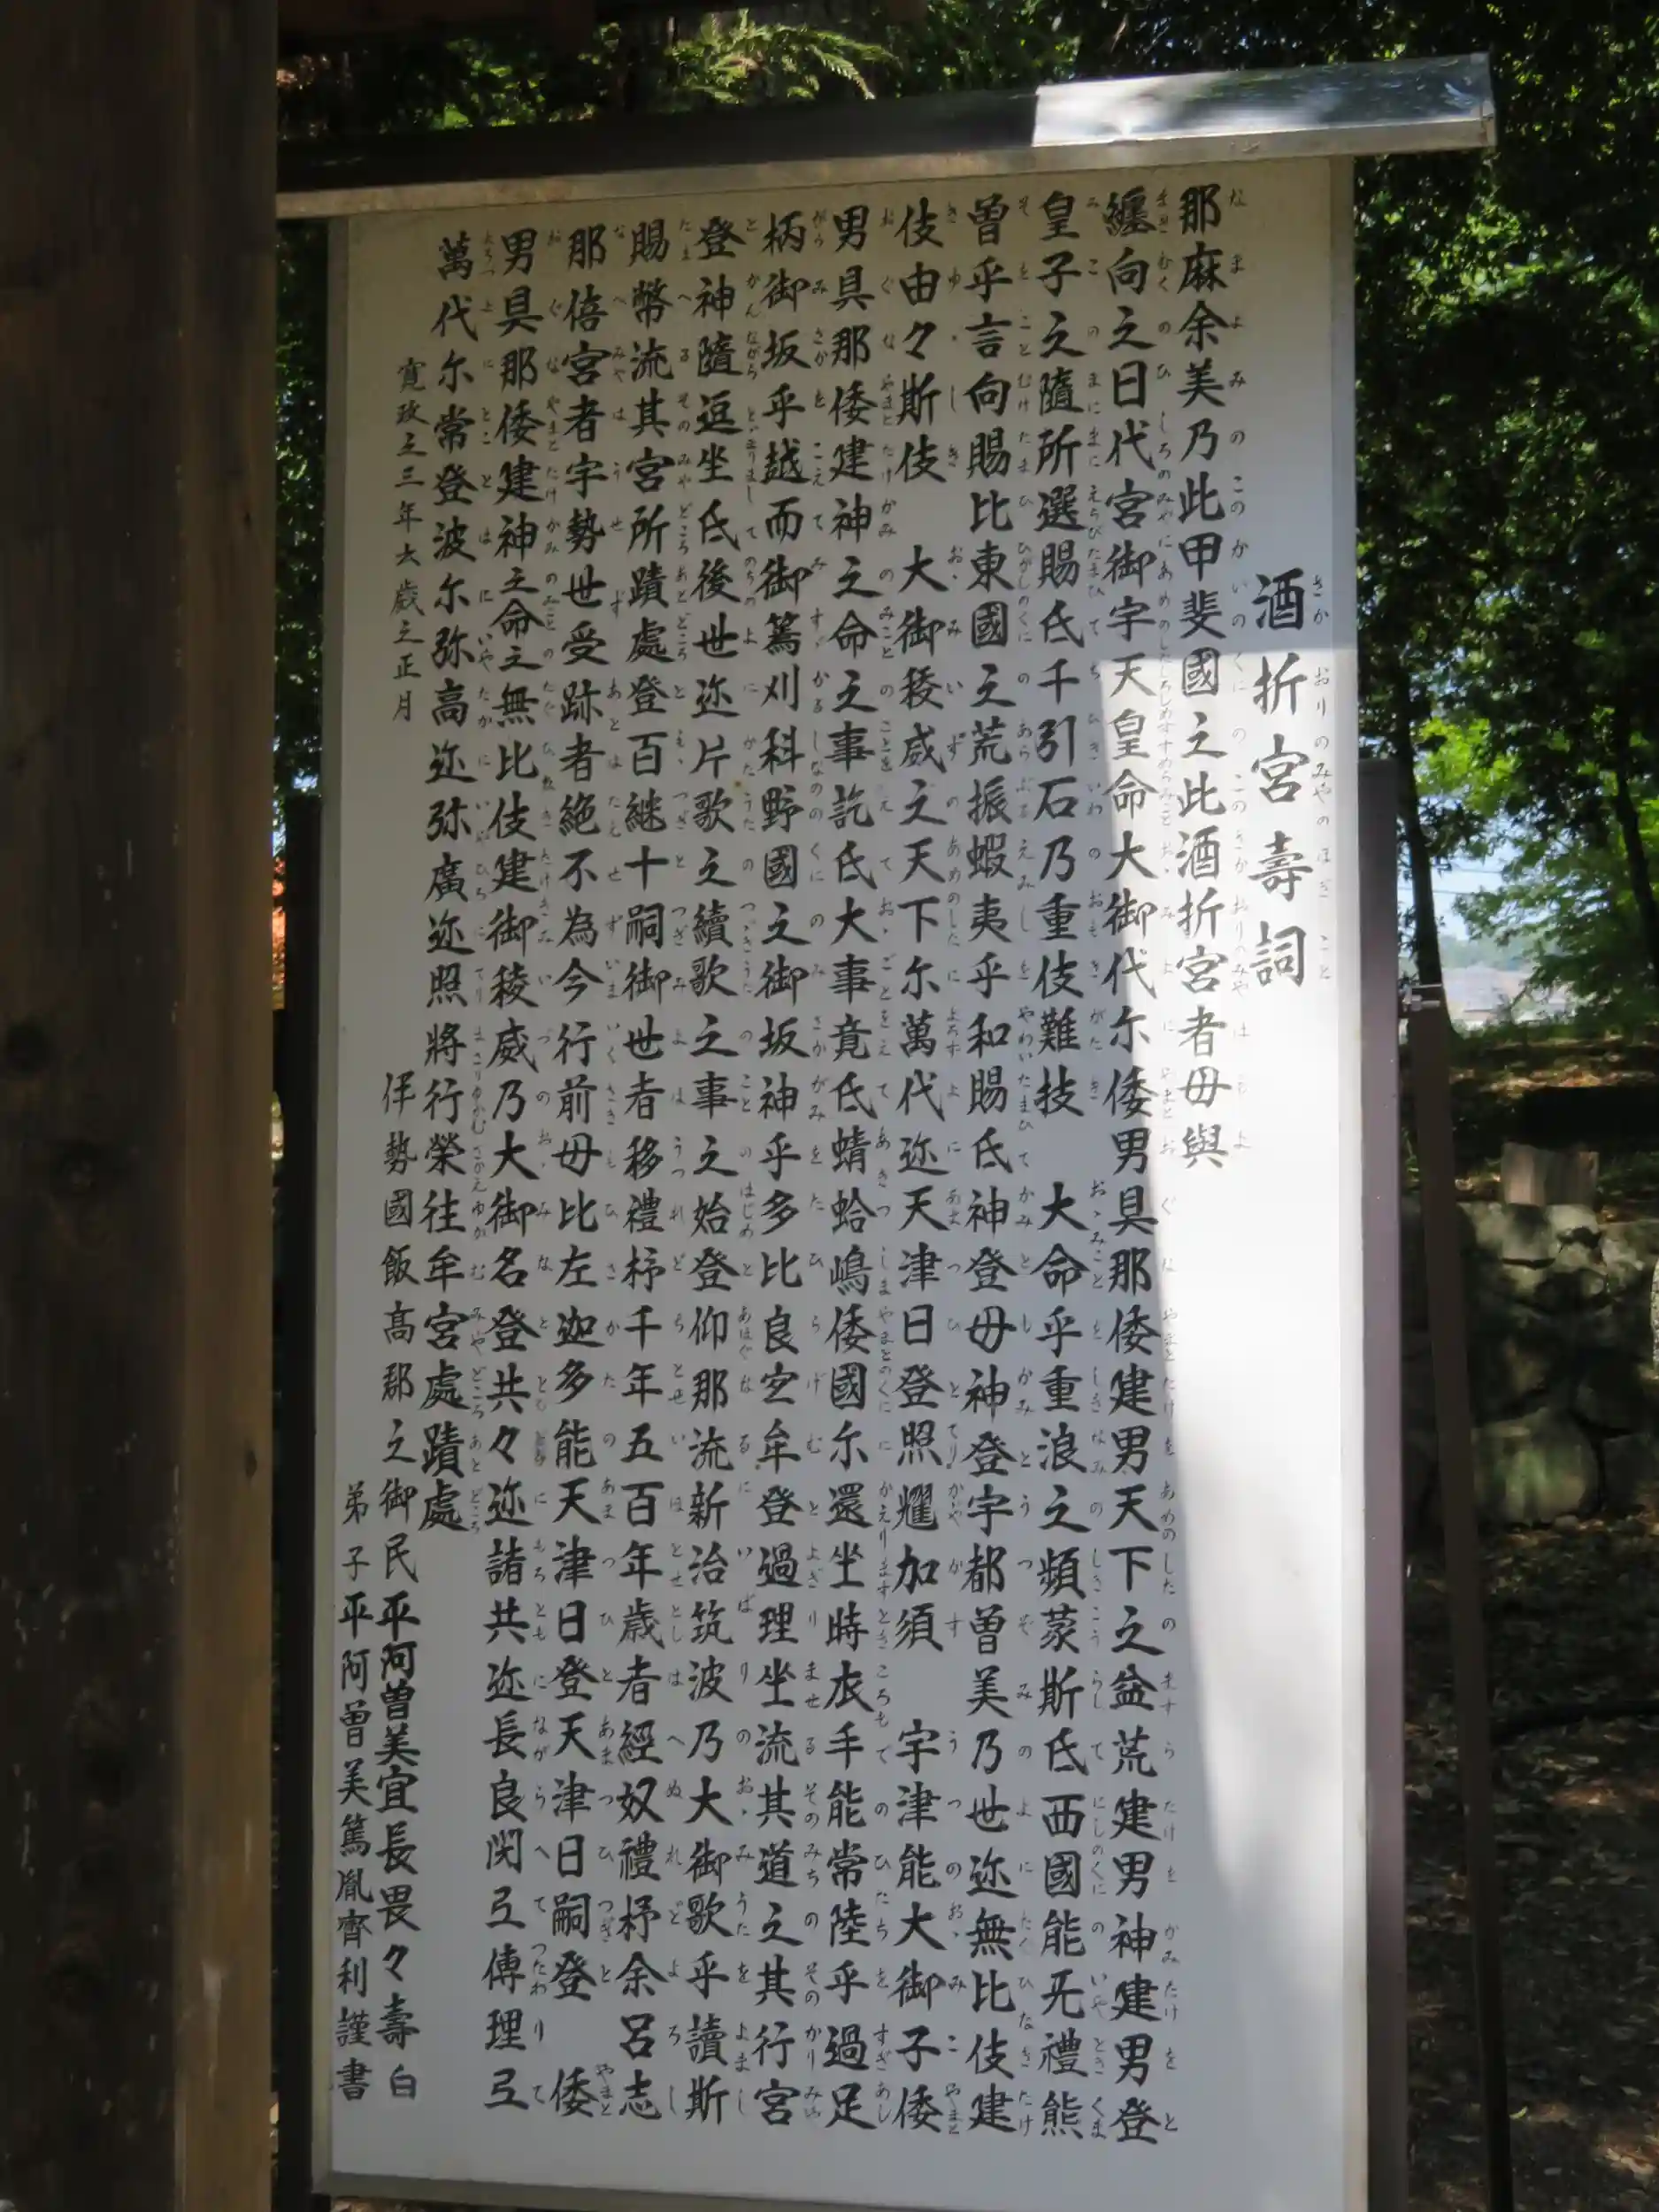 酒折宮壽詞
那麻余美乃此甲斐國之此酒折宮者毋與
纏向之日代宮御宇天皇命大御代尓倭男具那倭建男天下之益荒建男神建男登
皇子之隨所選賜氐千引石乃重伎難技　大命乎重浪之頻蒙斯氐西國能旡禮熊
曽乎言向賜比東國之荒振蝦夷乎和賜氐神登毋神登宇都曽美乃世迩無比伎建
伎由々斯伎　大御稜威之天下尓萬代迩天津日登照耀加須　宇津能大御子倭
男具那倭建神之命之事訖氐大事竟氐蜻蛤嶋倭國尓還坐時衣手能常陸乎過足
柄御坂乎越而御篶刈科野國之御坂神乎多比良宜牟登過理坐流其道之其行宮
登神隨逗坐氐後世迩片歌之續歌之事之始登仰那流新治筑波乃大御歌乎讀斯
賜幣流其宮所蹟處登百継十嗣御世者移禮杼千年五百年歳者經奴禮杼余呂志
那倍宮者宇勢世受跡者絶不為今行前毋比左迦多能天津日登天津日嗣登　倭
男具那倭建神之命之無比伎建御稜威乃大御名登共々迩諸共迩長良閇弖傳理弖
萬代尓常登波尓弥高迩弥廣迩照將行榮往牟宮處蹟處
寛政之三年六歳之正月
伊勢國飯高郡之御民平阿曽美宣長畏々壽白
弟子平阿曽美篤胤齊利謹書